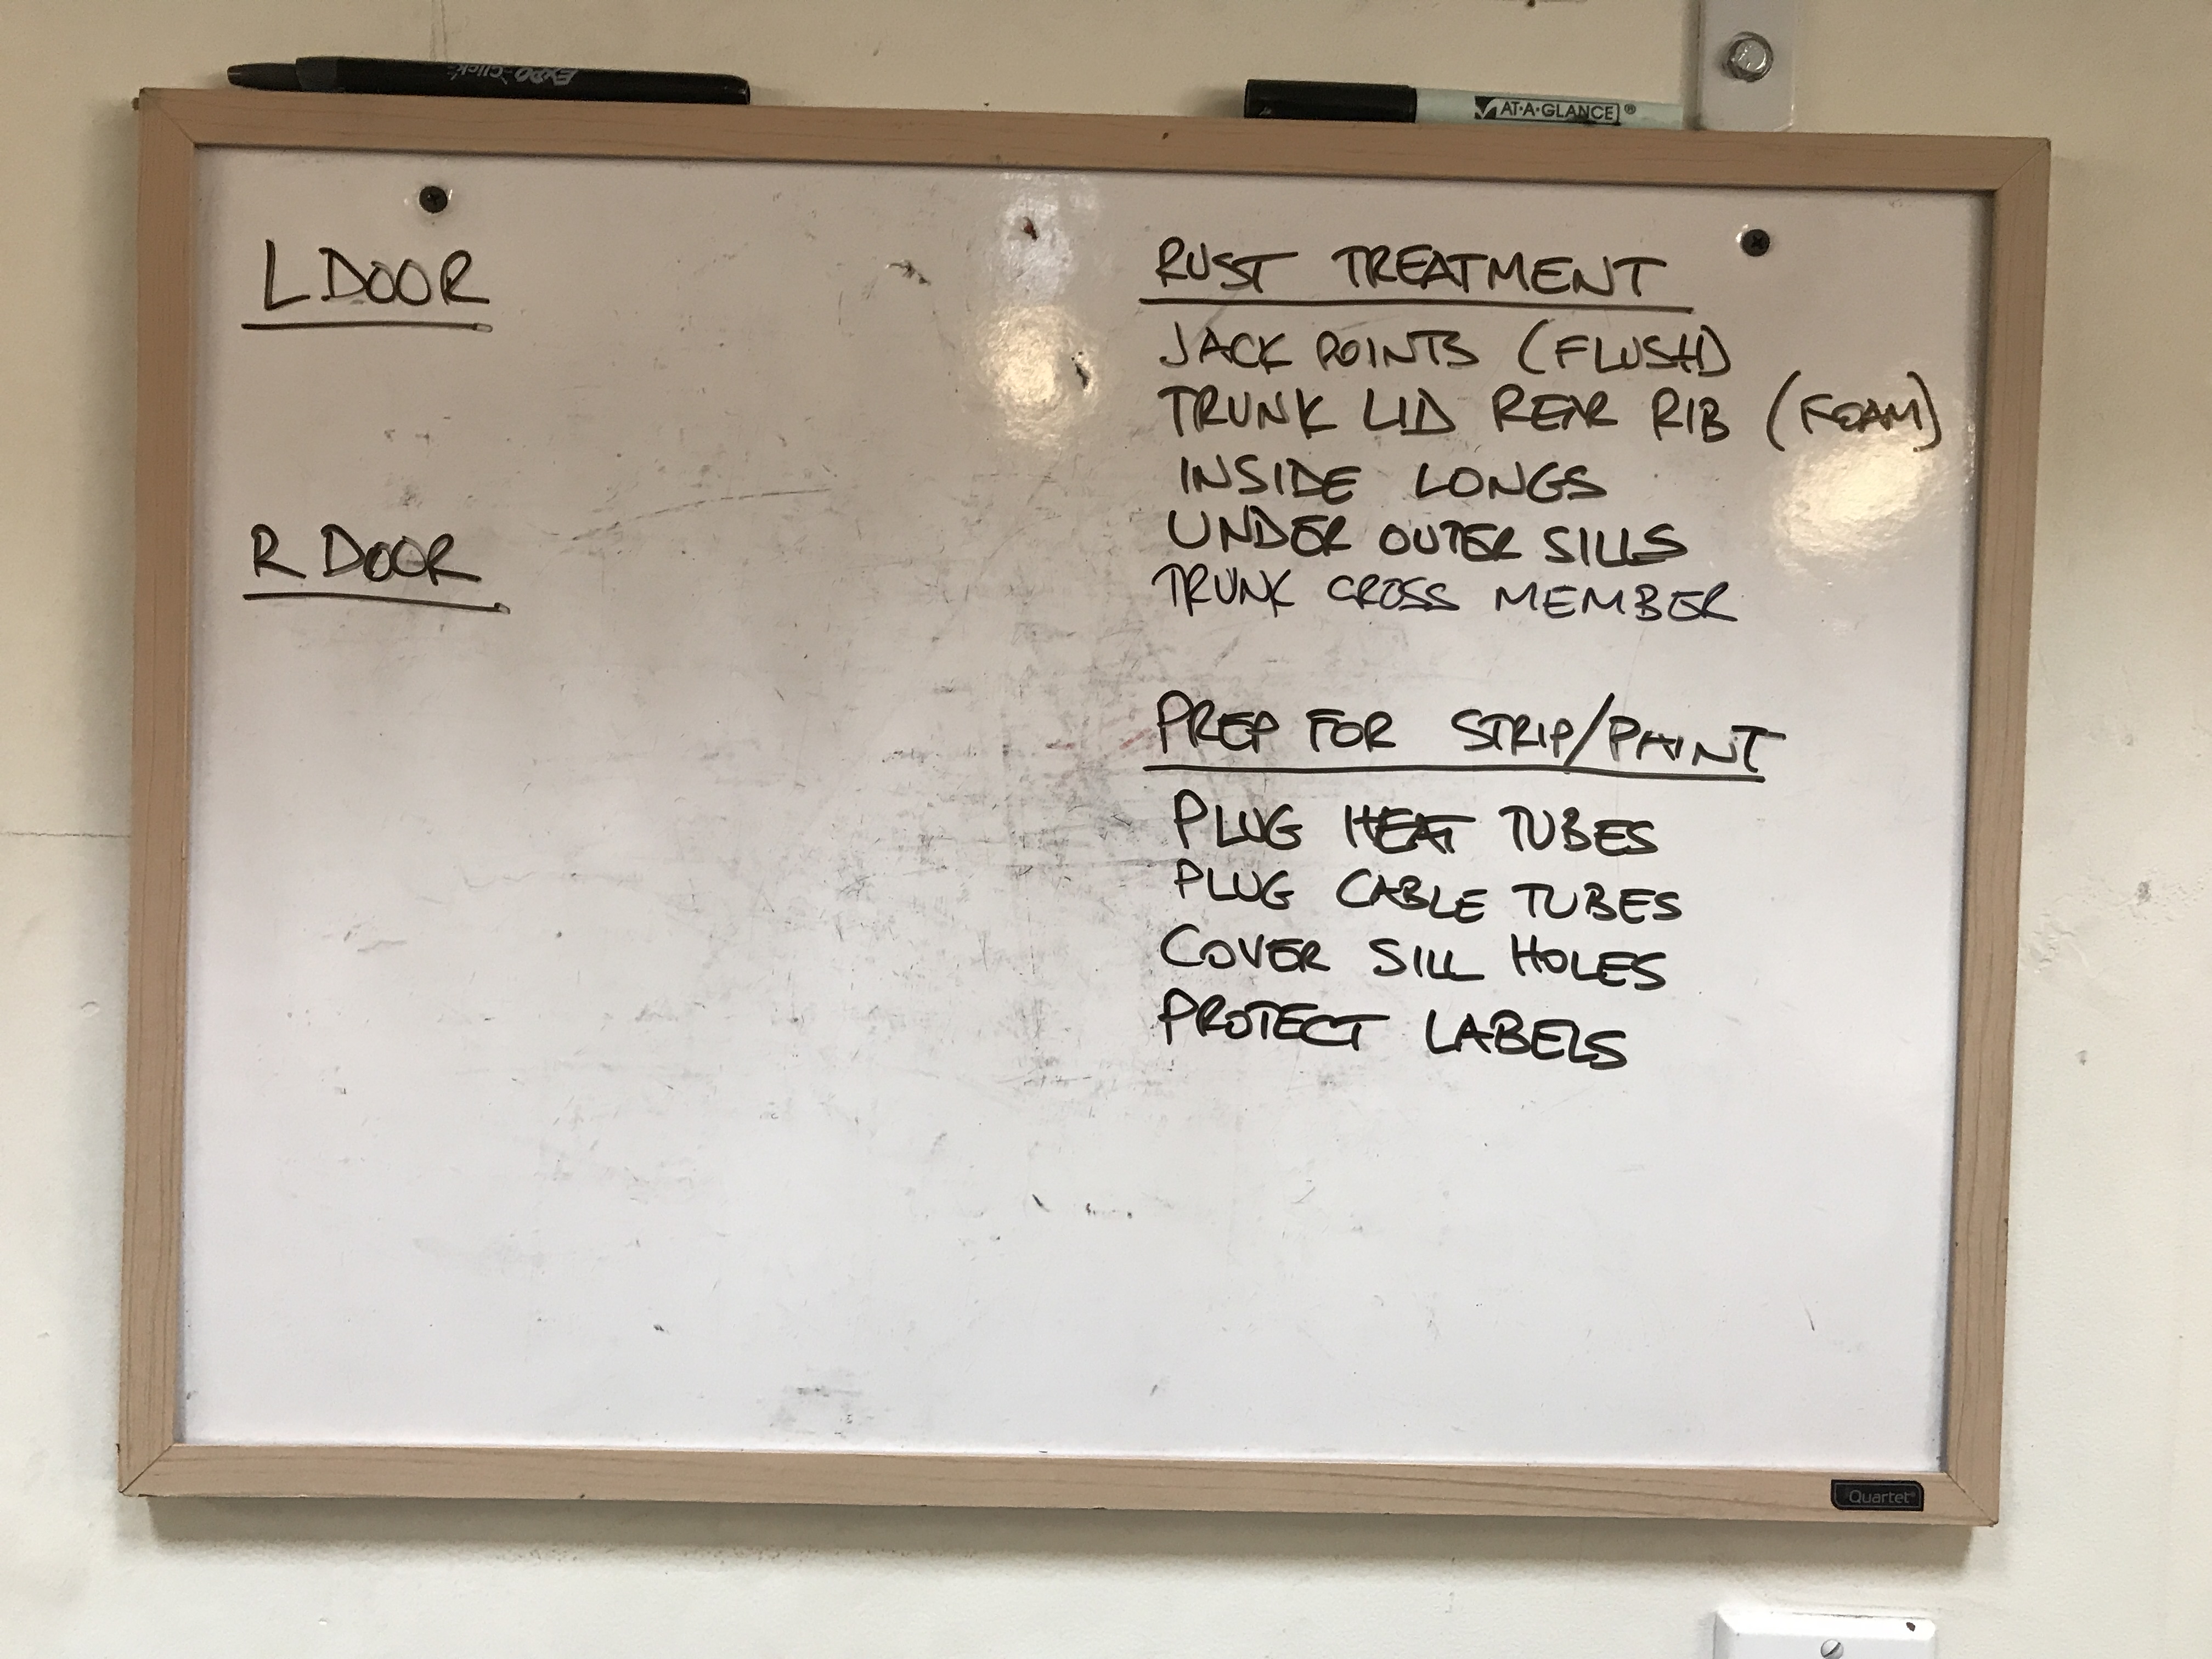 Expo Click
AT-A-GLANCE®
L DOOR
R DOOR
RUST TREATMENT
JACK POINTS (FLUSH)
TRUNK LID REAR RIB (FOAM)
INSIDE LONGS
UNDER OUTER SILLS
TRUNK CROSS MEMBER
PREP FOR STRIP/PAINT
PLUG HEAT TUBES
PLUG CABLE TUBES
COVER SILL HOLES
PROTECT LABELS
Quartet®